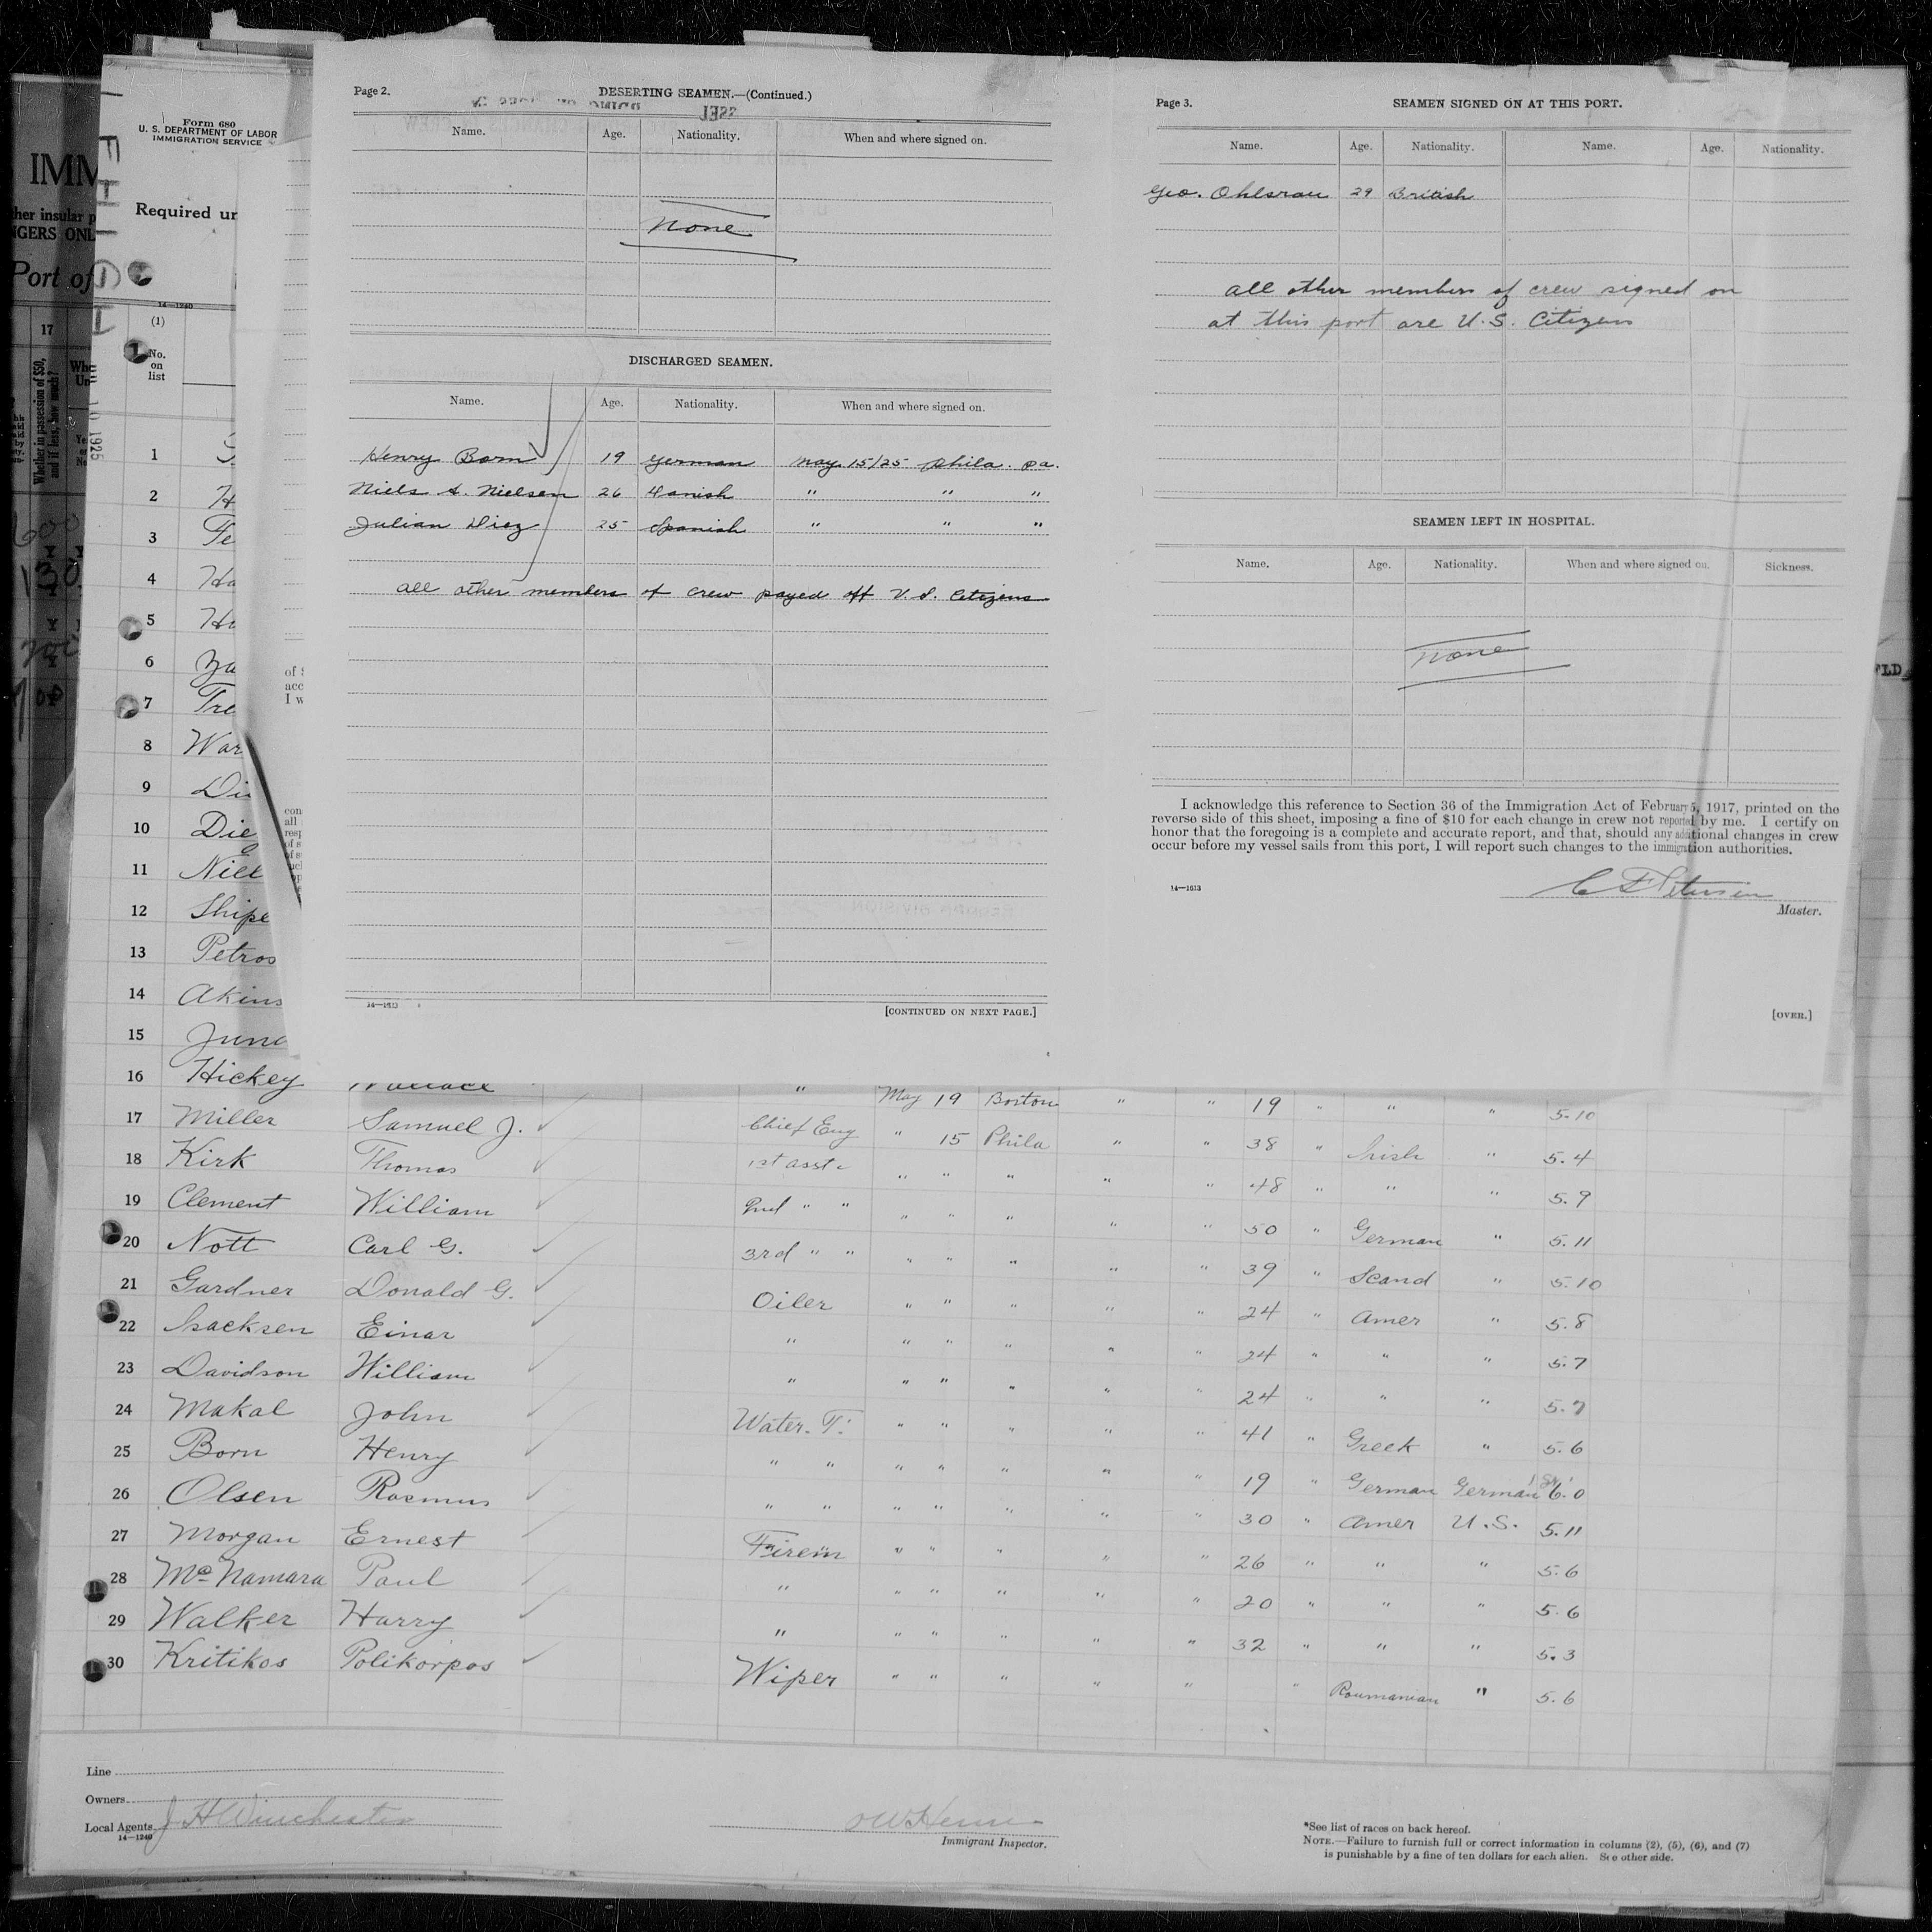 Form 680
U. S. DEPARTMENT OF LABOR
IMMIGRATION SERVICE
IMM
Required un
her insular p
NGERS ONL
Port of
14—1240
17
Whether in possession of $50, and if less, how much?
(1)
No. on list
1925
1
2 H
3 Fe
4 Ha
5 Hu
6 Ya
7 Tre
8 War
9 Di
10 Die
11 Niel
12 Shipe
13 Petros
14 Akins
15 June
16 Hickey Wallace "
Page 2. DESERTING SEAMEN.—(Continued.)
Name. Age. Nationality. When and where signed on.
None
DISCHARGED SEAMEN.
Name. Age. Nationality. When and where signed on.
Henry Born 19 German May 15/25 Phila. Pa.
Niels A. Nielsen 26 Danish " " "
Julian Diez 25 Spanish " " "
All other members of crew payed off U.S. Citizens
14—1613
[CONTINUED ON NEXT PAGE.]
Page 3. SEAMEN SIGNED ON AT THIS PORT.
Name. Age. Nationality. Name. Age. Nationality.
Geo. Ohlsrau 29 British
all other members of crew signed on
at this port are U.S. Citizens
SEAMEN LEFT IN HOSPITAL.
Name. Age. Nationality. When and where signed on. Sickness.
None
I acknowledge this reference to Section 36 of the Immigration Act of February 5, 1917, printed on the
reverse side of this sheet, imposing a fine of $10 for each change in crew not reported by me. I certify on
honor that the foregoing is a complete and accurate report, and that, should any additional changes in crew
occur before my vessel sails from this port, I will report such changes to the immigration authorities.
14—1613
C F Petersen
Master.
[OVER.]
May 19 Boston " " 19 " " " 5.10
17 Miller Samuel J. Chief Eng " 15 Phila " " 38 " Irish " 5.4
18 Kirk Thomas 1st asst " " " " " 48 " " " 5.9
19 Clement William 2nd " " " " " " " 50 " German " 5.11
20 Nott Carl G. 3rd " " " " " " " 39 " Scand " 5.10
21 Gardner Donald G. Oiler " " " " " 24 " Amer " 5.8
22 Isacksen Einar " " " " " " 24 " " " 5.7
23 Davidson William " " " " " " 24 " " " 5.7
24 Makal John Water. T. " " " " " 41 " Greek " 5.6
25 Born Henry " " " " " " " 19 " German German 6.0
26 Olsen Rasmus " " " " " " " 30 " Amer U.S. 5.11
27 Morgan Ernest Firem " " " " " 26 " " " 5.6
28 McNamara Paul " " " " " " 20 " " " 5.6
29 Walker Harry " " " " " " 32 " " " 5.3
30 Kritikos Polikorpos Wiper " " " " " " Roumanian " 5.6
Line
Owners
Local Agents J H Winchester
14—1240
Immigrant Inspector.
*See list of races on back hereof.
NOTE.—Failure to furnish full or correct information in columns (2), (5), (6), and (7)
is punishable by a fine of ten dollars for each alien. See other side.